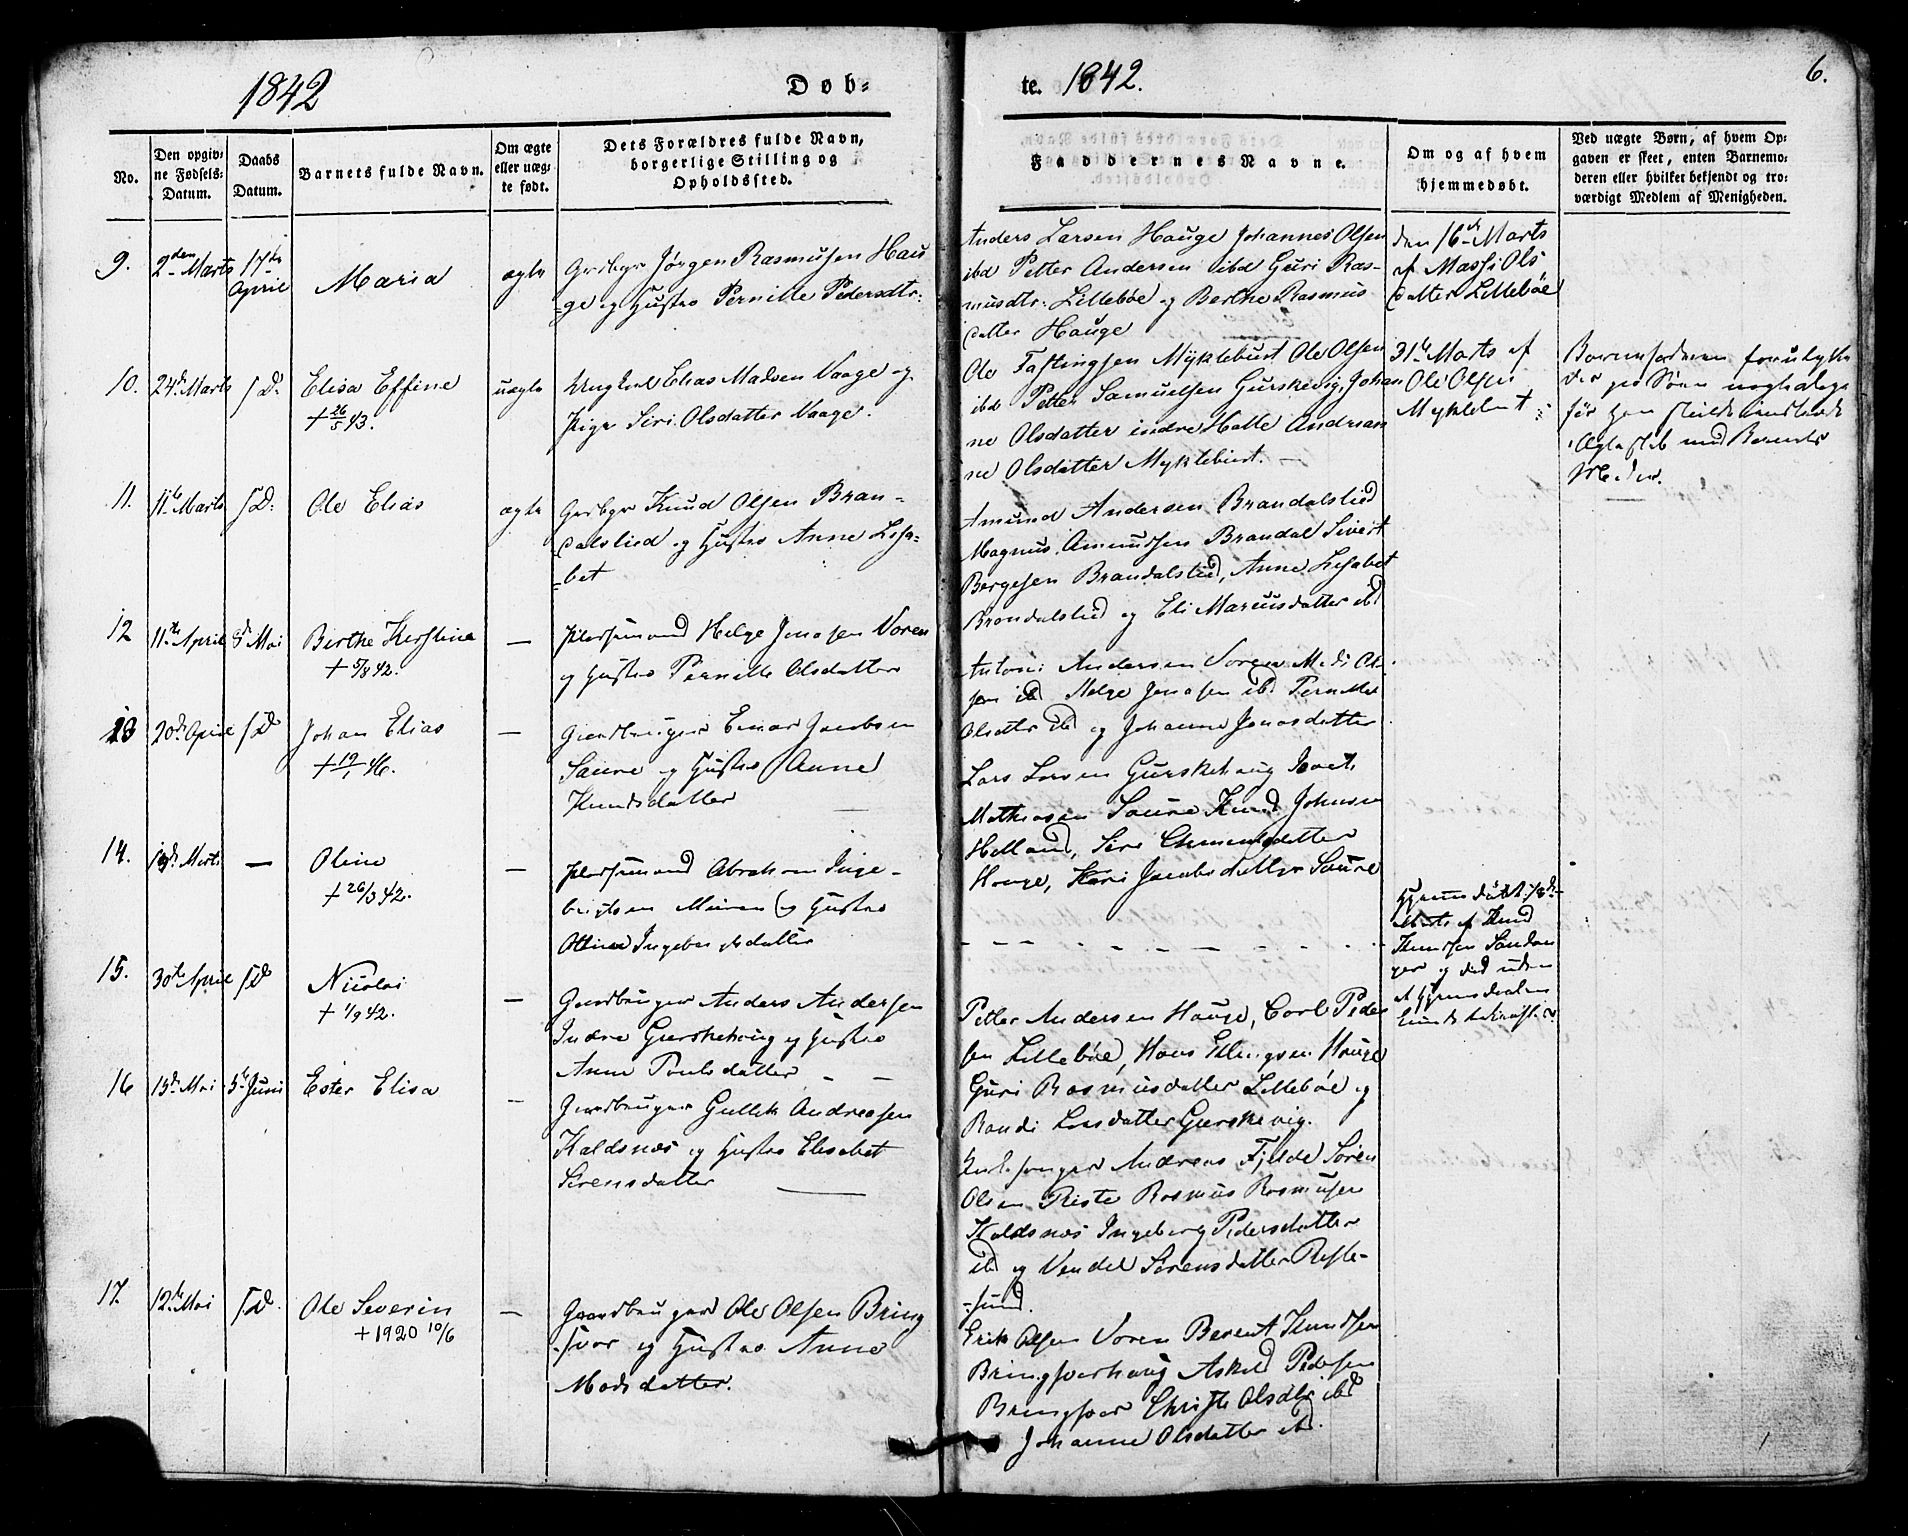 1842
Døb-
te. 1842.
6.
No.
Den opgiv-
ne Fødsels-
Datum.
Daabs
Datum.
Barnets fulde Navn.
Om ægte
eller uæg-
te født.
Dets Forældres fulde Navn,
borgerlige Stilling og
Opholdssted.
Faddernes Navne.
Om og af hvem
hjemmedøbt.
Ved uægte Børn, af hvem Op-
gaven er skeet, enten Barnemo-
deren eller hvilket bekjendt og tro-
værdigt Medlem af Menigheden.
9.
2den Marts
17de
April
Maria
ægte
Grdbgr Jørgen Rasmusen Hau-
-ge og Hustro Pernille Pedersdtr.
Anders Larsen Hauge Johannes Olsen
ibd Petter Andersen ibd Guri Ras-
musdtr. Lillebøe og Berthe Rasmus
datter Hauge
den 16de Marts
af Massi Ols
datter Lillebøe
10.
24de Marts
S.D.
Elisa Effine
+ 26/5 43.
uægte
Ungkarl Elias Madsen Vaage og
Pige Siri Olsdatter Vaage.
Ole Fastingsen Myklebust Ole Olsen
ibd Petter Samuelsen Gurskevig, Johan
ne Olsdatter indre Hatle Andrian
ne Olsdatter Myklebust. -
31te Marts af
Ole Olsen
Myklebust
Barnefaderen forulyk
før han
Ægteskab med Barnets
Moder.
11.
11te Marts
S.D.
Ole Elias
ægte
Grdbgr Knud Olsen Bran-
dalslied og Hustro Anne Lisa-
-bet
Amund Andersen Brandalslied
Magnus Amundsen Brandal Sivert
Bergesen Brandalslied, Anne Lisabet
Brandalslied og Eli Mariusdatter ibd
12
11te April
8de Mai
Birthe Kirstine
+ 5/8 42.
—
Pladsemand Helge Jonasen Voren
og Hustro Pernille Olsdatter
Anton Andersen Voren Mads Ol-
sen ibd Helge Jonasen ibd Pernille
Olsdtr ibd og Johanne Jonasdatter
13
20de April
S.D
Johan Elias
+ 19/1 46.
—
Gaardbruger Einar Jacobsen
Saure og Hustro Anne
Knudsdatter
Lars Larsen Gurskehaug
Mathiasen Saure Knud Johnsen
Helland, Siri Clemensdatter
Hauge, Kari Jacobsdatter Saure
14.
19de Marts
—
Oline
+ 26/3 42.
—
Pladsemand Abraham Inge-
brigtsen Muren og Hustro
Oline Ingebrigtsdatter
- - - - - - - - -
Hjemmedøbt
Marts af Knud
Knudsen Sandan
ger og død uden
at Hjemmedaaben
15.
30te April
S.D
Nicolai
+ 1/9 42.
—
Gaardbruger Anders Andersen
Indre Gurskehaug og Hustro
Anne Poulsdatter - -
Petter Andersen Hauge, Carl Peder
sen Lillebøe, Hans Ellingsen Hauge
Guri Rasmusdatter Lillebøe og
Randi Larsdatter Gurskevig.
16
13de Mai
5te Juni
Ester Elisa
-
Gaardbruger Gullik Andreasen
Koldsnæs og Hustro Elisabet
Sørensdatter
Andreas Fjelde Søren
Olsen Riste Rasmus Rasmusen
Koldsnæs Ingeberg Pedersdatter
ibd og Vendel Sørensdatter Røste-
-sund.
17.
12te Mai
S.D.
Ole Severin
+ 1920 10/6
—
Gaardbruger Ole Olsen Bring
svor og Hustro Anne
Madsdatter.
Erik Olsen Voren Berent Knudsen
Bringsvorhaug Askild Pedersen
Bringsvor Christi Olsdtr ibd
Johanne Olsdatter ibd.